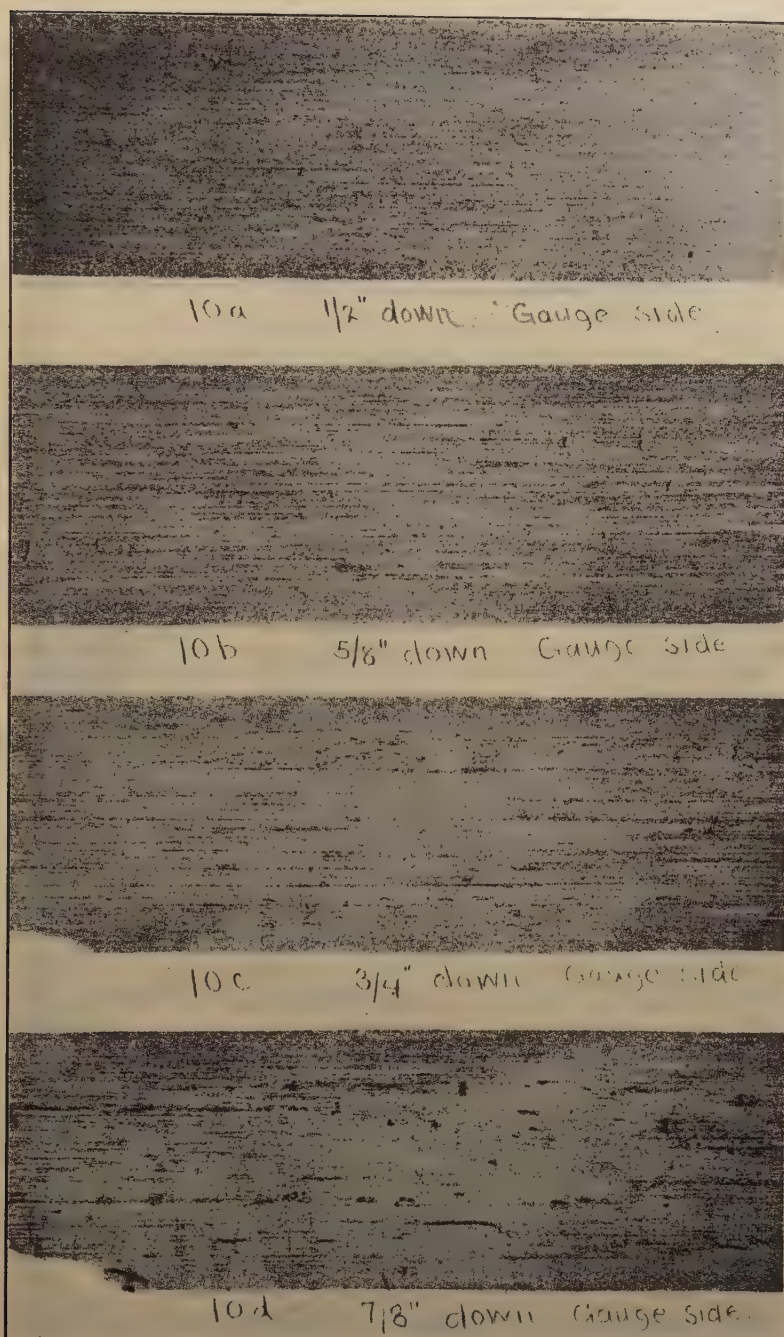 10a 1/2" down Gauge side
10b 5/8" down Gauge side
10c 3/4" down Gauge side
10d 7/8" down Gauge side.